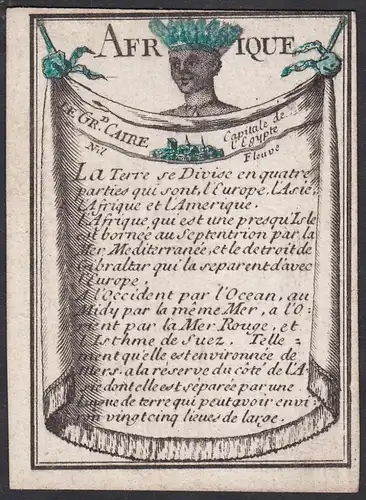 AFRIQUE
LE GR.D CAIRE
Capitale de
l'Egypte
Nil
Fleuve
LA Terre se Divise en quatre
parties qui sont, l'Europe, l'Asie,
l'Afrique et l'Amerique.
L'Afrique qui est une presqu'Isle
est bornée au Septentrion par la
Mer Mediterranée, et le detroit de
Gibraltar qui la separent d'avec
l'Europe,
A l'Occident par l'Ocean, au
Midy par la même Mer, a l'O-
rient par la Mer Rouge, et
l'Isthme de Suez. Telle-
ment qu'elle est environnée de
Mers, a la réserve du côté de l'A-
sie dont elle est séparée par une
Langue de terre qui peut avoir envi-
ron vingt cinq lieues de large.